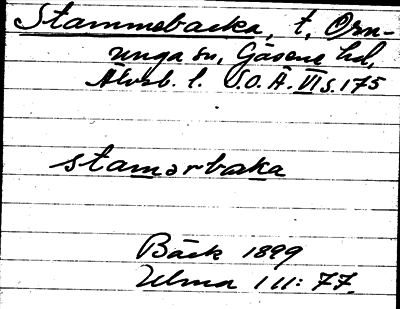 Stammebacka, t, Orn-
unga sn, Gäsene hd,
Älvsb. l. S.O.Ä. VI s. 175
stamərbaka
Bäck 1899
Ulma 1 11: 77.